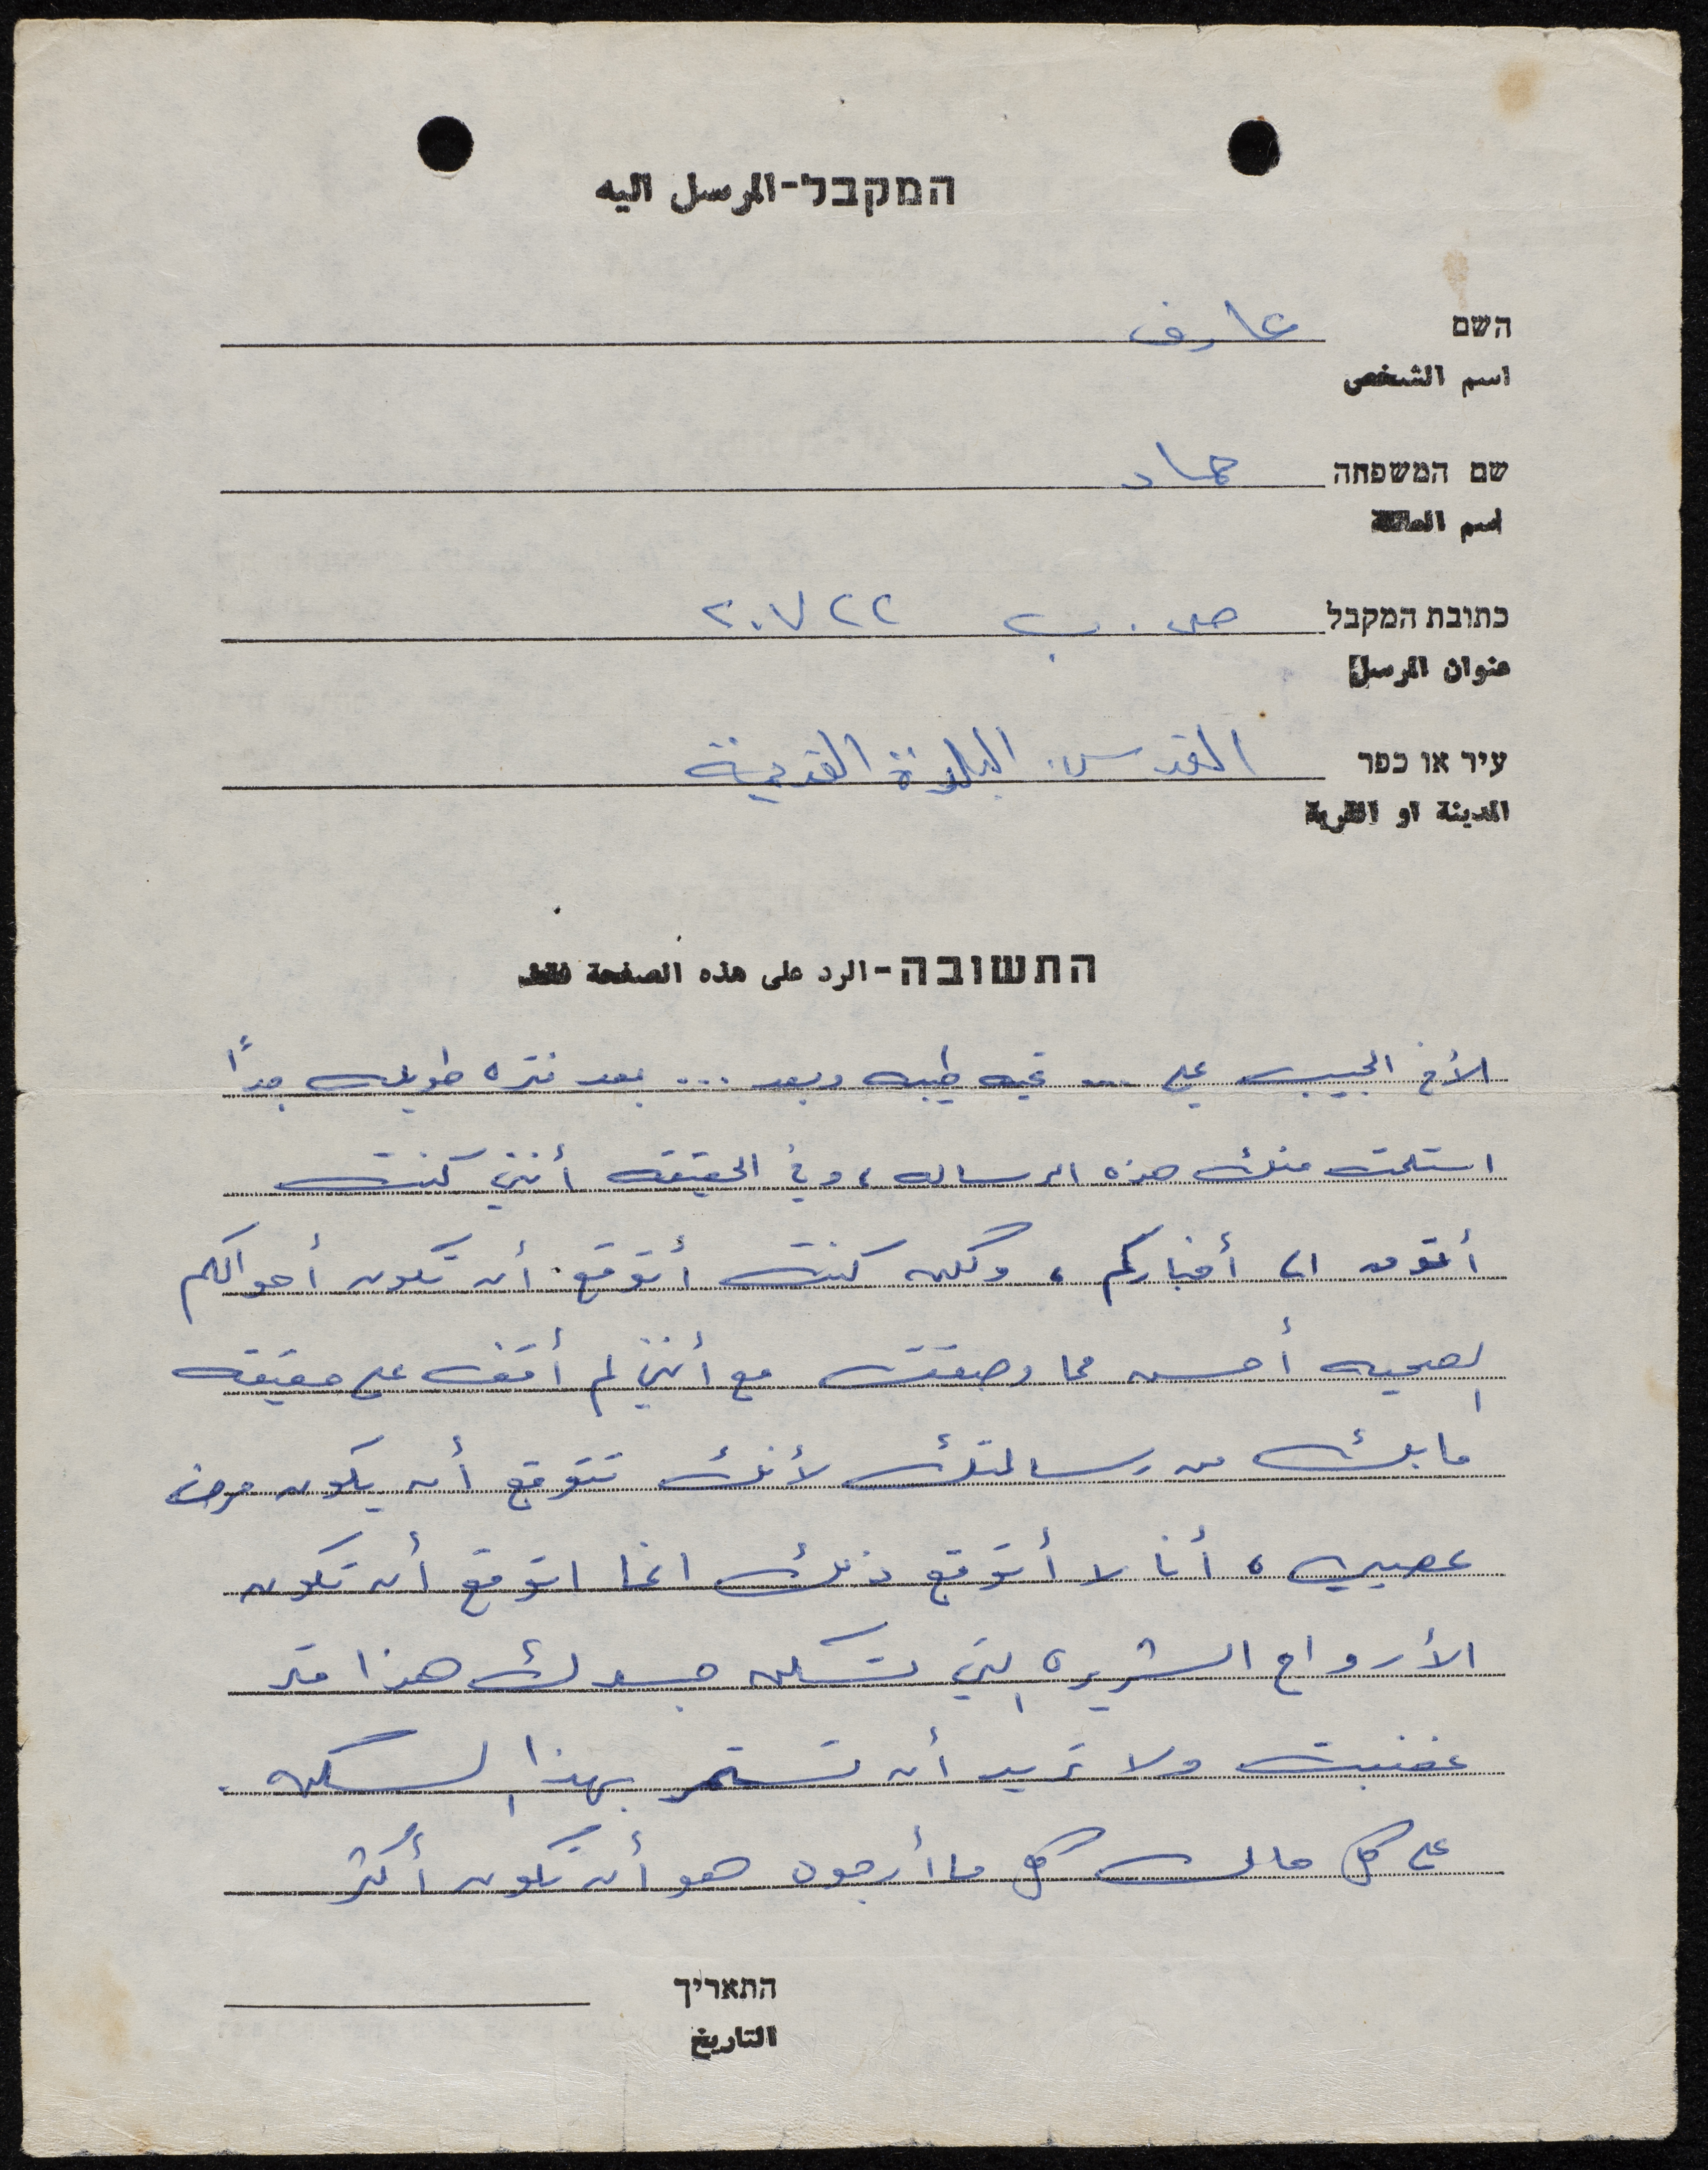 המקבל-المرسل اليه
השם عارف
اسم الشخص
שם המשפחה حماد
اسم العائلة
כתובת המקבל ص. ب ٢٠٧٢٢
عنوان المرسل
עיר או כפר القدس. البلدة القديمة
المدينة او القرية
התשובה-الرد على هذه الصفحة فقط
الأخ الحبيب علي ... تحيه طيبه وبعد ... بعد فتره طويله جداً
استلمت منك هذه الرساله ، وفي الحقيقه أنني كنت
أتوق الى أخباركم ، ولكن كنت أتوقع أن تكون أحوالكم
الصحيه أحسن مما وصفت مع أنني لم أقف على حقيقه
ما بك من رسالتك لأنك تتوقع أن يكون مرض
عصبي ، أنا لا أتوقع ذلك انما اتوقع أن تكون
الأرواح الشريره التي تسكن جسدك هذا قد
غضبت ولا تريد أن تستمر بهذا السكن .
على كل حال كل ما أرجوه هو أن تكون أكثر
התאריך
التاريخ